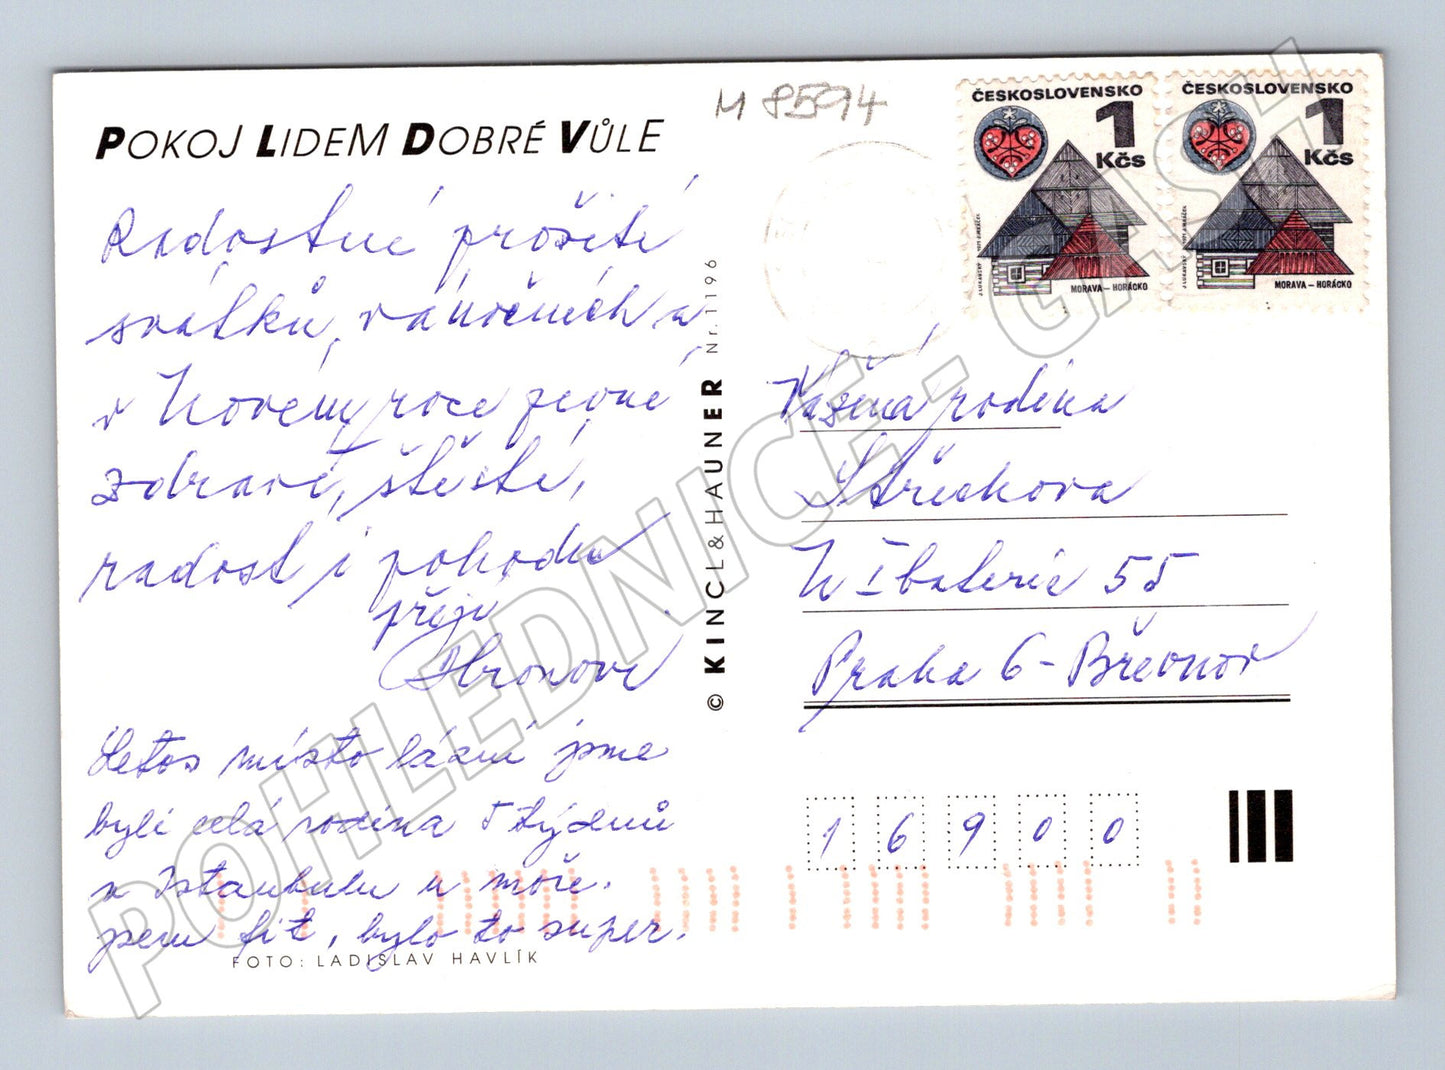 POKOJ LIDEM DOBRÉ VŮLE
Radostné prožití
svátků vánočních a
v Novém roce pevné
zdraví, štěstí,
radost i pohodu
přejí
Hronovi
Letos místo lázní jsme
byli celá rodina 5 týdnů
u Istanbulu u moře.
jsem fit, bylo to super.
FOTO: LADISLAV HAVLÍK
© KINCL & HAUNER Nr. 1196
M 8594
ČESKOSLOVENSKO
1
Kčs
MORAVA – HORÁCKO
ČESKOSLOVENSKO
1
Kčs
MORAVA – HORÁCKO
Vážená rodina
Střichova
U I baterie 55
Praha 6 - Břevnov
16900
POHLEDNICE - GASH